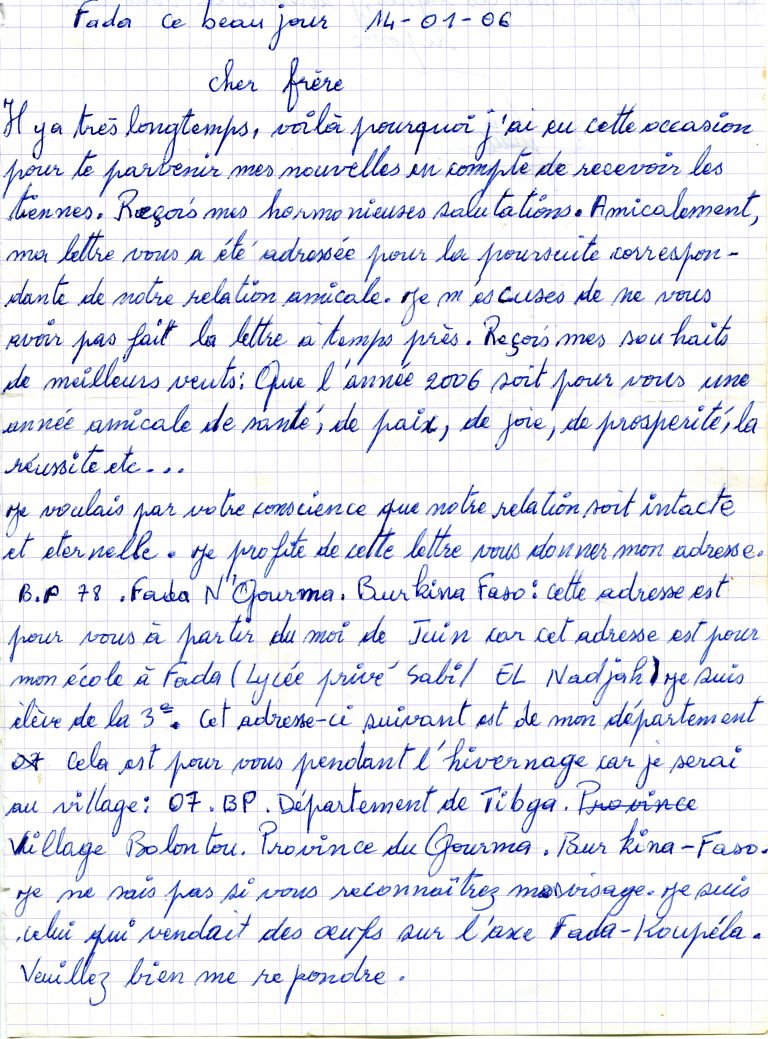 Fada ce beau jour 14-01-06
cher frère
Il ya très longtemps, voilà pourquoi j'ai eu cette occasion
pour te parvenir mes nouvelles en compte de recevoir les
tiennes. Reçois mes harmonieuses salutations. Amicalement,
ma lettre vous a été adressée pour la poursuite correspon-
dante de notre relation amicale. Je m'escuses de ne vous
avoir pas fait la lettre à temps près. Reçois mes souhaits
de meilleurs veuts: Que l'année 2006 soit pour vous une
année amicale de santé, de paix, de joie, de prosperité, la
réussite etc...
Je voulais par votre conscience que notre relation soit intacte
et eternelle. Je profite de cette lettre vous donner mon adresse.
B.P 78 . Fada N'Gourma. Burkina Faso: cette adresse est
pour vous à partir du moi de Juin car cet adresse est pour
mon école à Fada (Lycée privé Sabil EL Nadjah) je suis
élève de la 3e. Cet adresse-ci suivant est de mon département
07 Cela est pour vous pendant l'hivernage car je serai
au village: 07. BP. Département de Tibga. Province
Village Bolontou. Province du Gourma. Burkina-Faso.
Je ne sais pas si vous reconnaîtrez mon visage. Je suis
celui qui vendait des œufs sur l'axe Fada-Koupéla.
Veuillez bien me repondre.